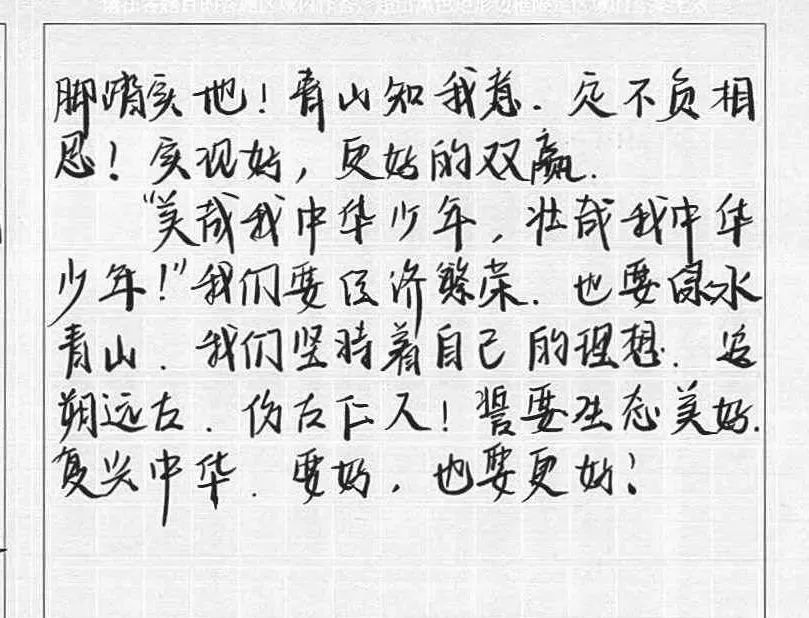 脚踏实地！青山知我意．定不负相
思！实现好，更好的双赢．
"美哉我中华少年，壮哉我中华
少年！"我们要经济繁荣．也要绿水
青山．我们坚持着自己的理想．追
朔远古．仿古仁人！誓要生态美好．
复兴中华．要好，也要更好！